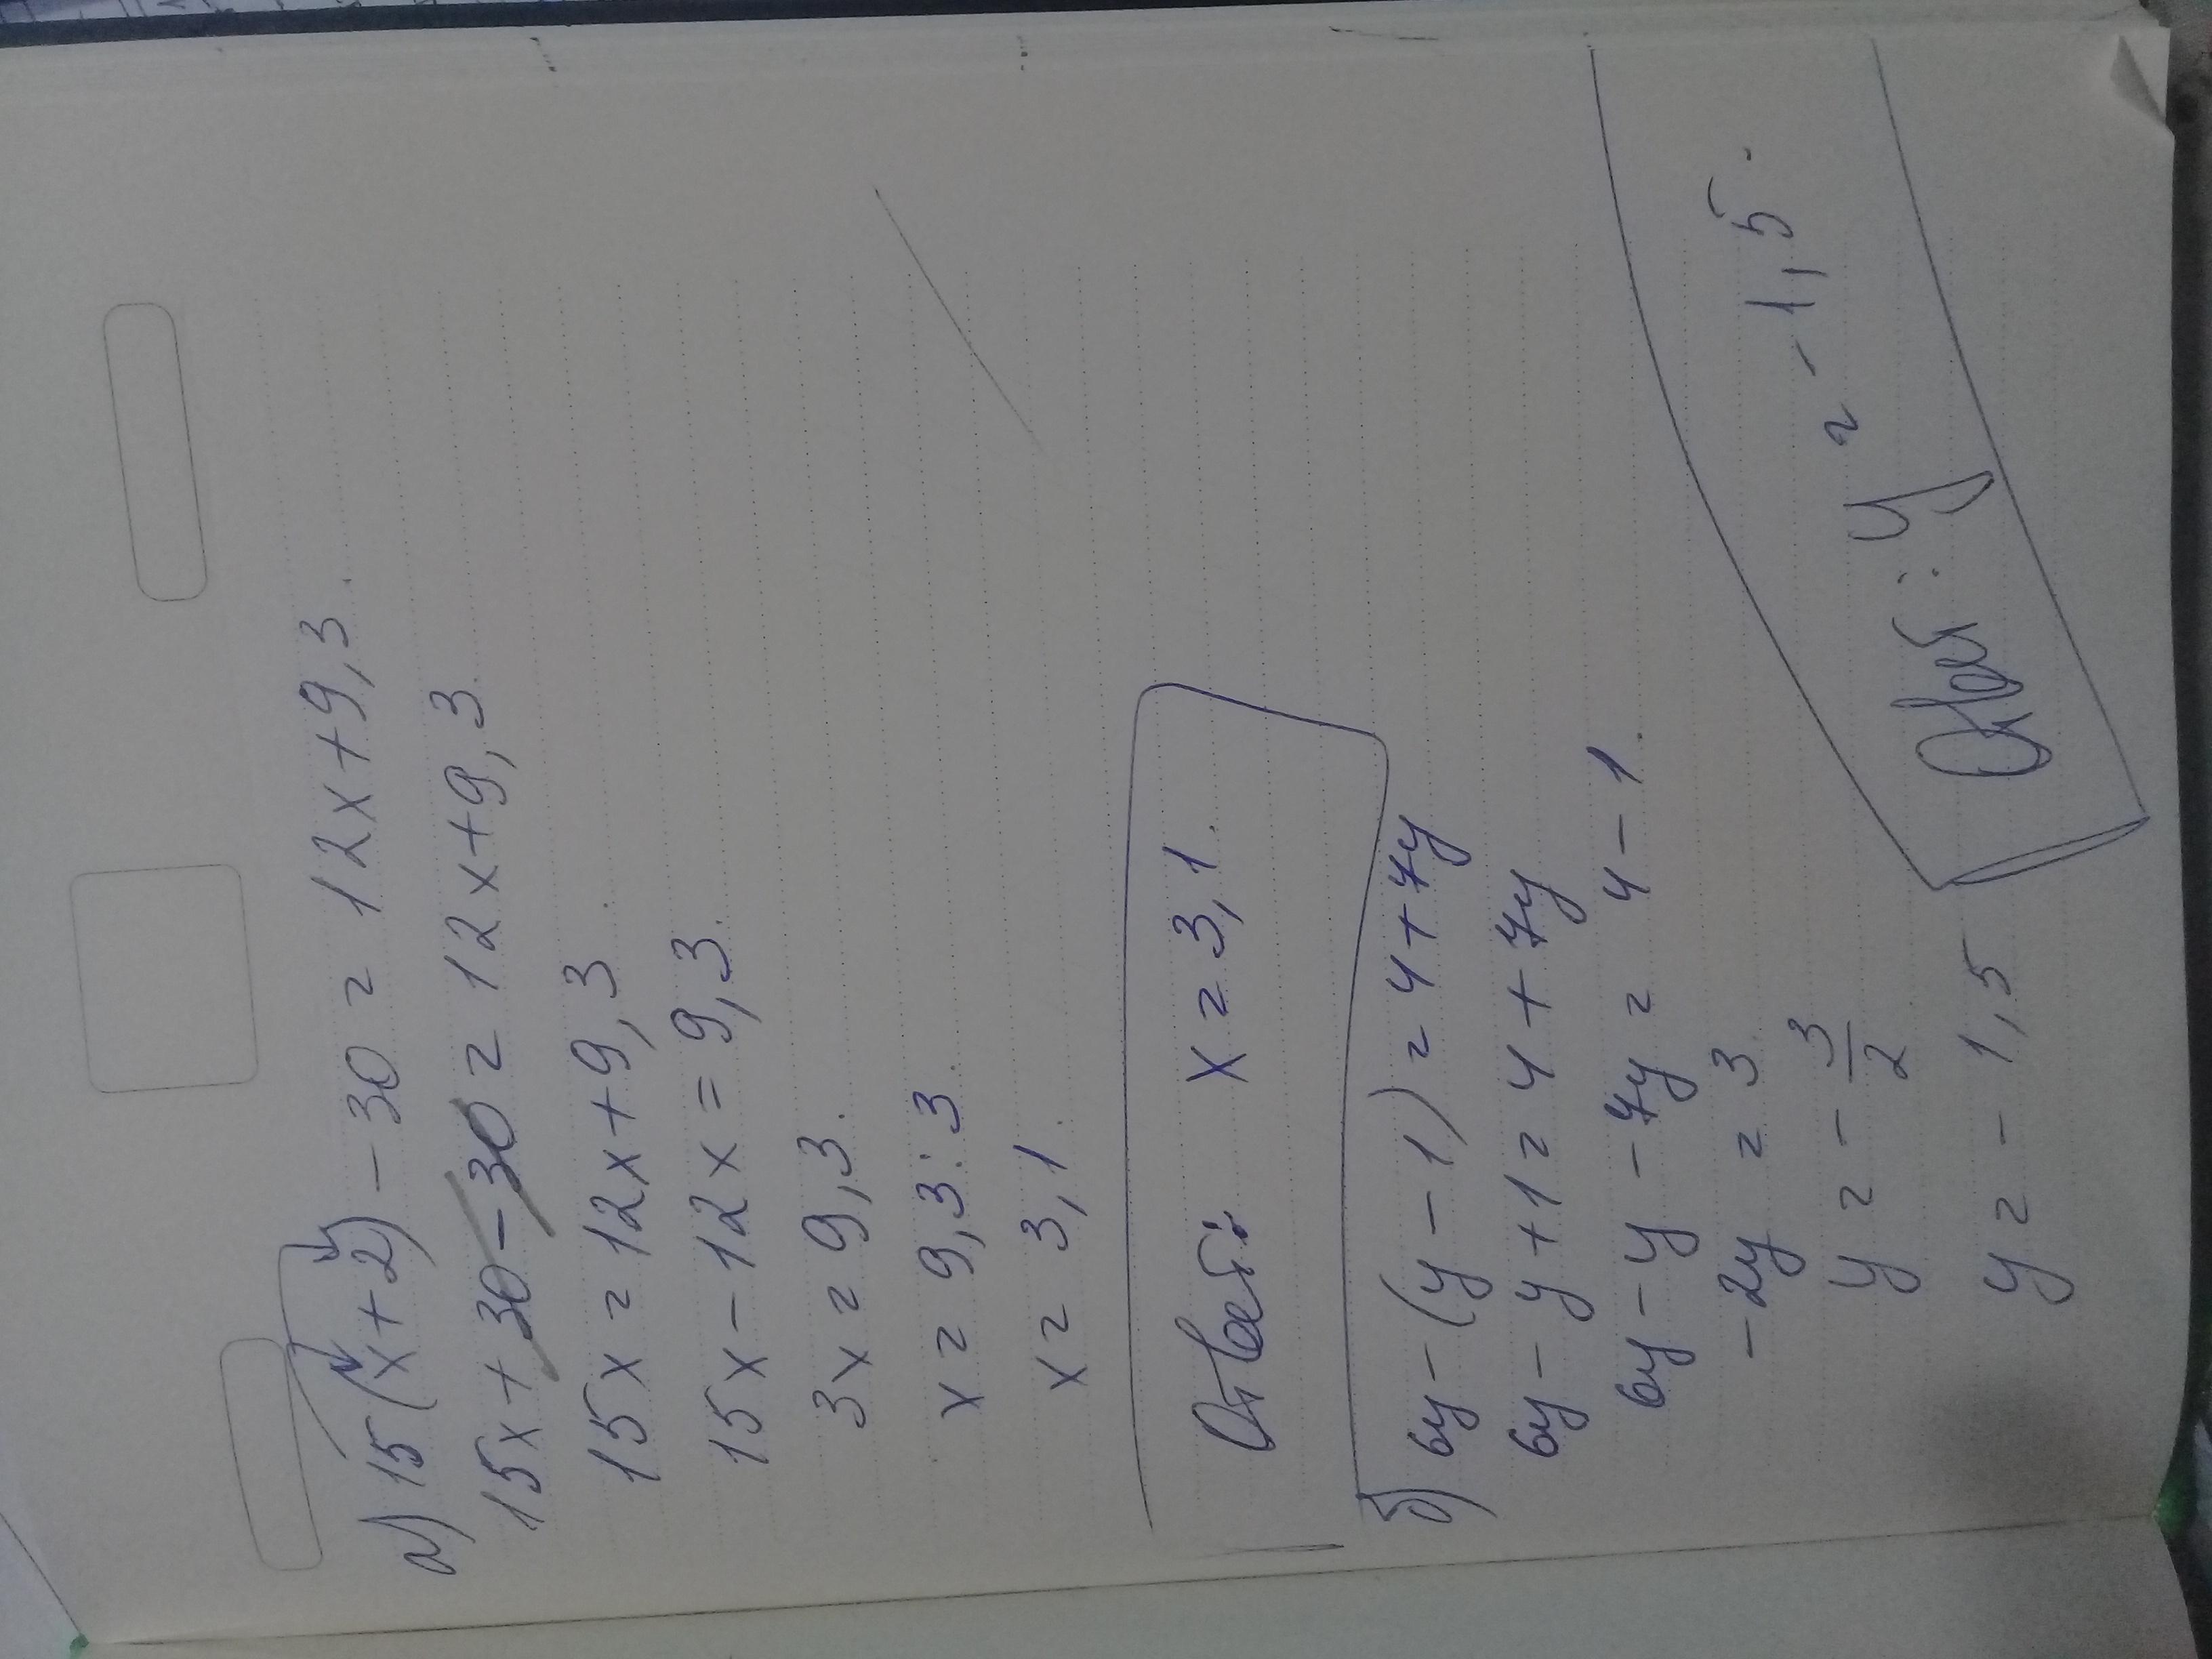 а) 15(x+2)-30=12x+9,3.
15x+30-30=12x+9,3.
15x=12x+9,3.
15x-12x=9,3.
3x=9,3.
x=9,3:3.
x=3,1.
Ответ: x=3,1.
б) 6y-(y-1)=4+7y
6y-y+1=4+7y
6y-y-7y=4-1.
-2y=3
y=-3/2
y=-1,5
Ответ: y=-1,5.